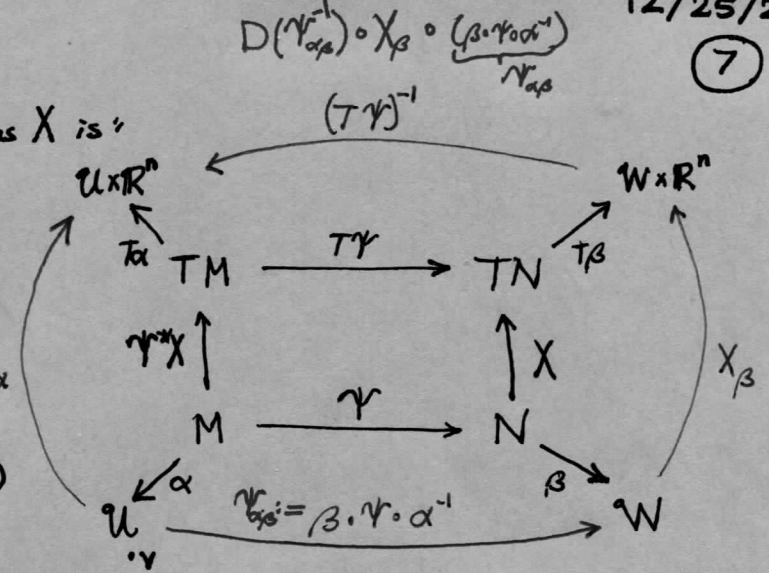 12/25/2
D(Ψ⁻¹αβ)∘Xβ∘(β∘Ψ∘α⁻¹)
Ψαβ
7
(TΨ)⁻¹
as X is:
U×ℝⁿ
W×ℝⁿ
Tα
TM
TΨ
TN
Tβ
Ψ*X
X
Xβ
α
M
Ψ
N
α
β
)
U
Ψαβ:=β∘Ψ∘α⁻¹
W